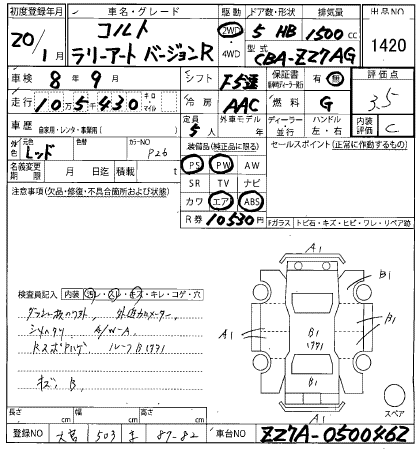 初度登録年月 車名・グレード 駆動 ドア数・形状 排気量 出品NO
20/1月 コルト ラリーアート バージョンR 2WD 4WD 5 HB 1500cc 1420
型式 CBA-Z27AG
車検 8年9月 シフト F5速 保証書 有・無 評価点
走行 105430 キロ・マイル 冷房 AAC 燃料 G 3.5
車歴 自家用・レンタ・事業用( ) 定員 5人 外車モデル 年 ディーラー・並行 ハンドル 左・右 内装評価 C
外色 元色 レッド 色替 カラーNO P26
装備品(純正品に限る) セールスポイント(正常に作動するもの)
名義変更期限 月 日迄 積載 t
PS PW AW
SR TV ナビ
カワ エアB ABS
R券 10530円
注意事項(欠品・修復・不具合箇所および状態)
Fガラス トビ石・キズ・ヒビ・ワレ・リペア跡
検査員記入 内装 汚レ・スレ・キズ・キレ・コゲ・穴
シミヘタリ A/W-A
ルーフB
キズ B
A1
B1
A1
B1
B1
B1
A1
スペア
長さ cm 幅 cm 高さ cm
登録NO 大宮 503 ま 87-82 車台NO Z27A-0500462